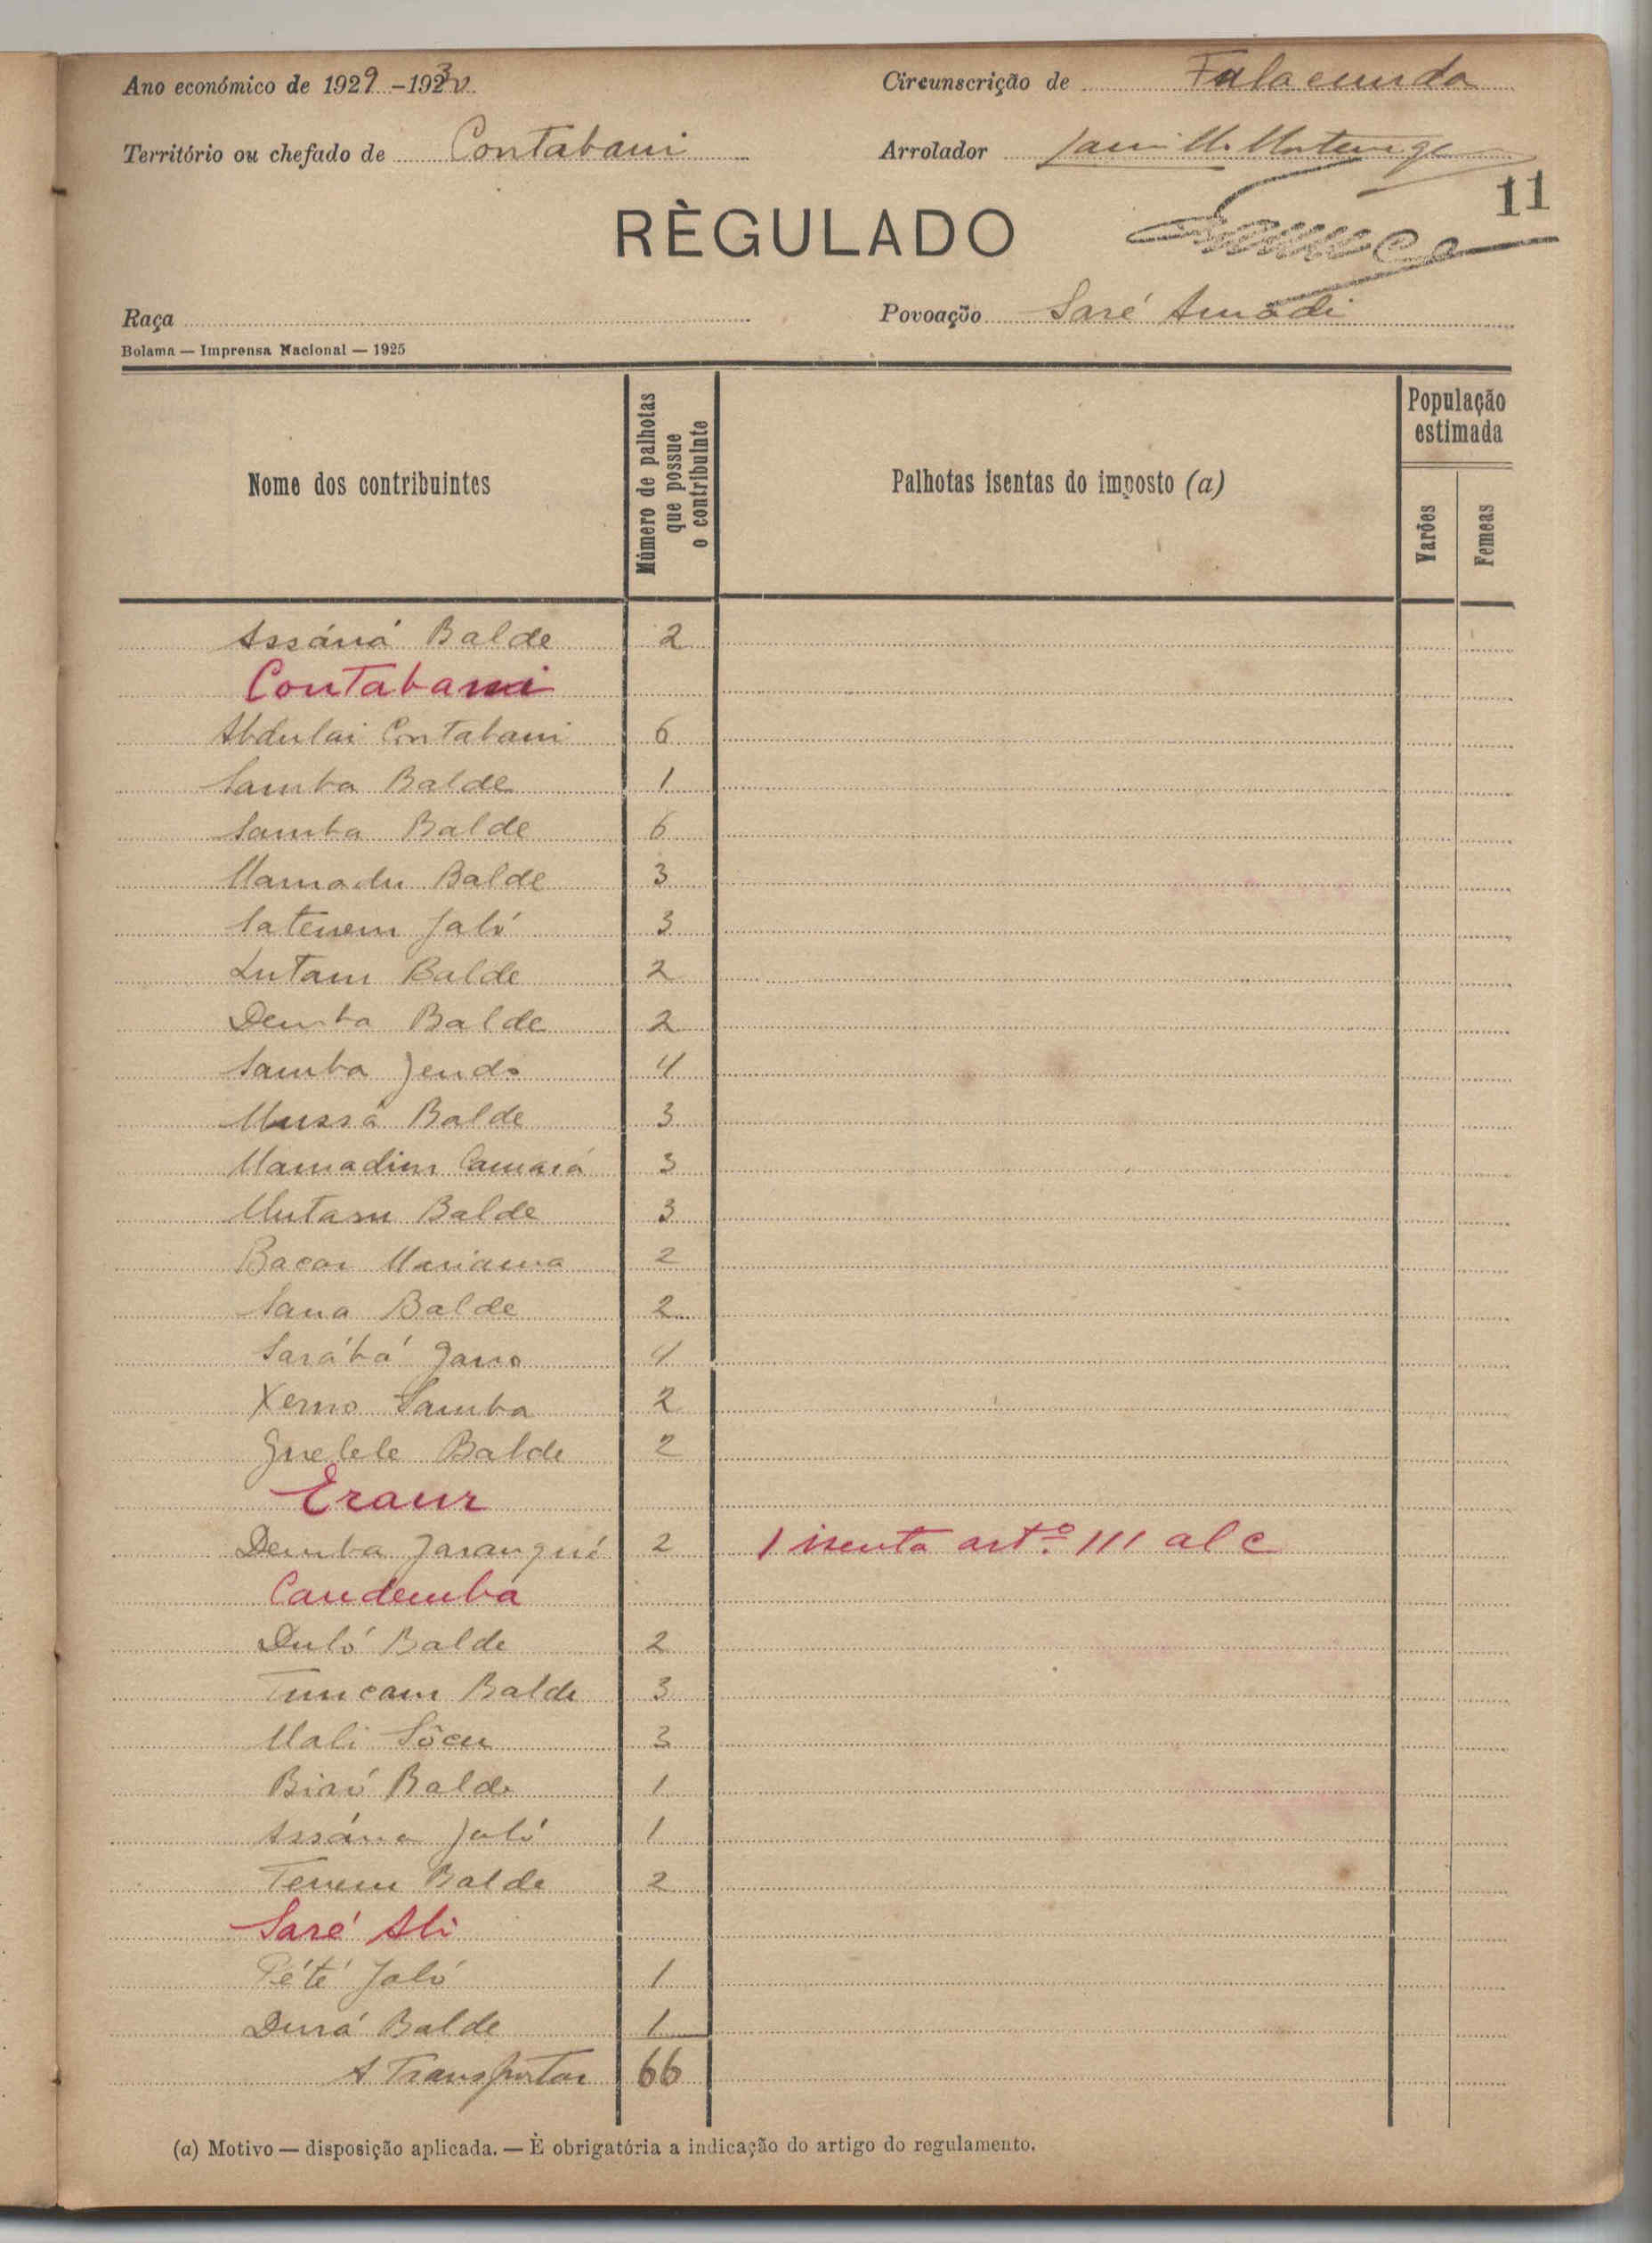 Ano económico de 1929-1930
Circunscrição de Fulacunda
Território ou chefado de Contabani
Arrolador
11
RÈGULADO
Raça
Povoação Saré Amadi
Bolama — Imprensa Nacional — 1925
Nome dos contribuintes
Número de palhotas que possue o contribuinte
Palhotas isentas do imposto (a)
População estimada
Varões
Femeas
Assáná Balde 2
Contabani
Abdulai Contabani 6
Samba Balde 1
Samba Balde 6
Mamadu Balde 3
Satenem Jaló 3
Lutam Balde 2
Demba Balde 2
Samba Jendo 4
Mussá Balde 3
Mamadim Camará 3
Mutaru Balde 3
Bacar Mariama 2
Sana Balde 2
Sarábá Jano 4
Xerno Samba 2
Guelele Balde 2
Eraur
Demba Jaranqué 2 1 isenta artº 111 al c
Candemba
Duló Balde 2
Tumcam Balde 3
Mali Sôcu 3
Biaró Balde 1
Assána Jaló 1
Tenem Balde 2
Saré Ali
Pété Jaló 1
Durá Balde 1
A Transportar 66
(a) Motivo — disposição aplicada. — È obrigatória a indicação do artigo do regulamento.